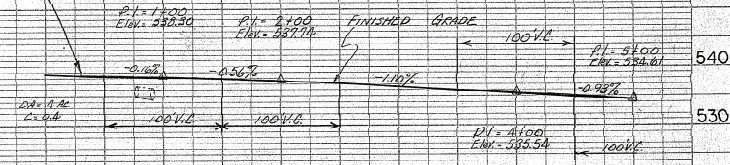 P.I. = 1+00
Elev. = 538.30
P.I. = 2+00
Elev. = 537.74
FINISHED GRADE
100' V.C.
P.I. = 5+00
Elev. = 534.61
540
-0.16%
-0.56%
-1.10%
-0.93%
DA = 1 AC
C = 0.4
100' V.C.
100' V.C.
530
P.I. = 4+00
Elev. = 535.54
100' V.C.